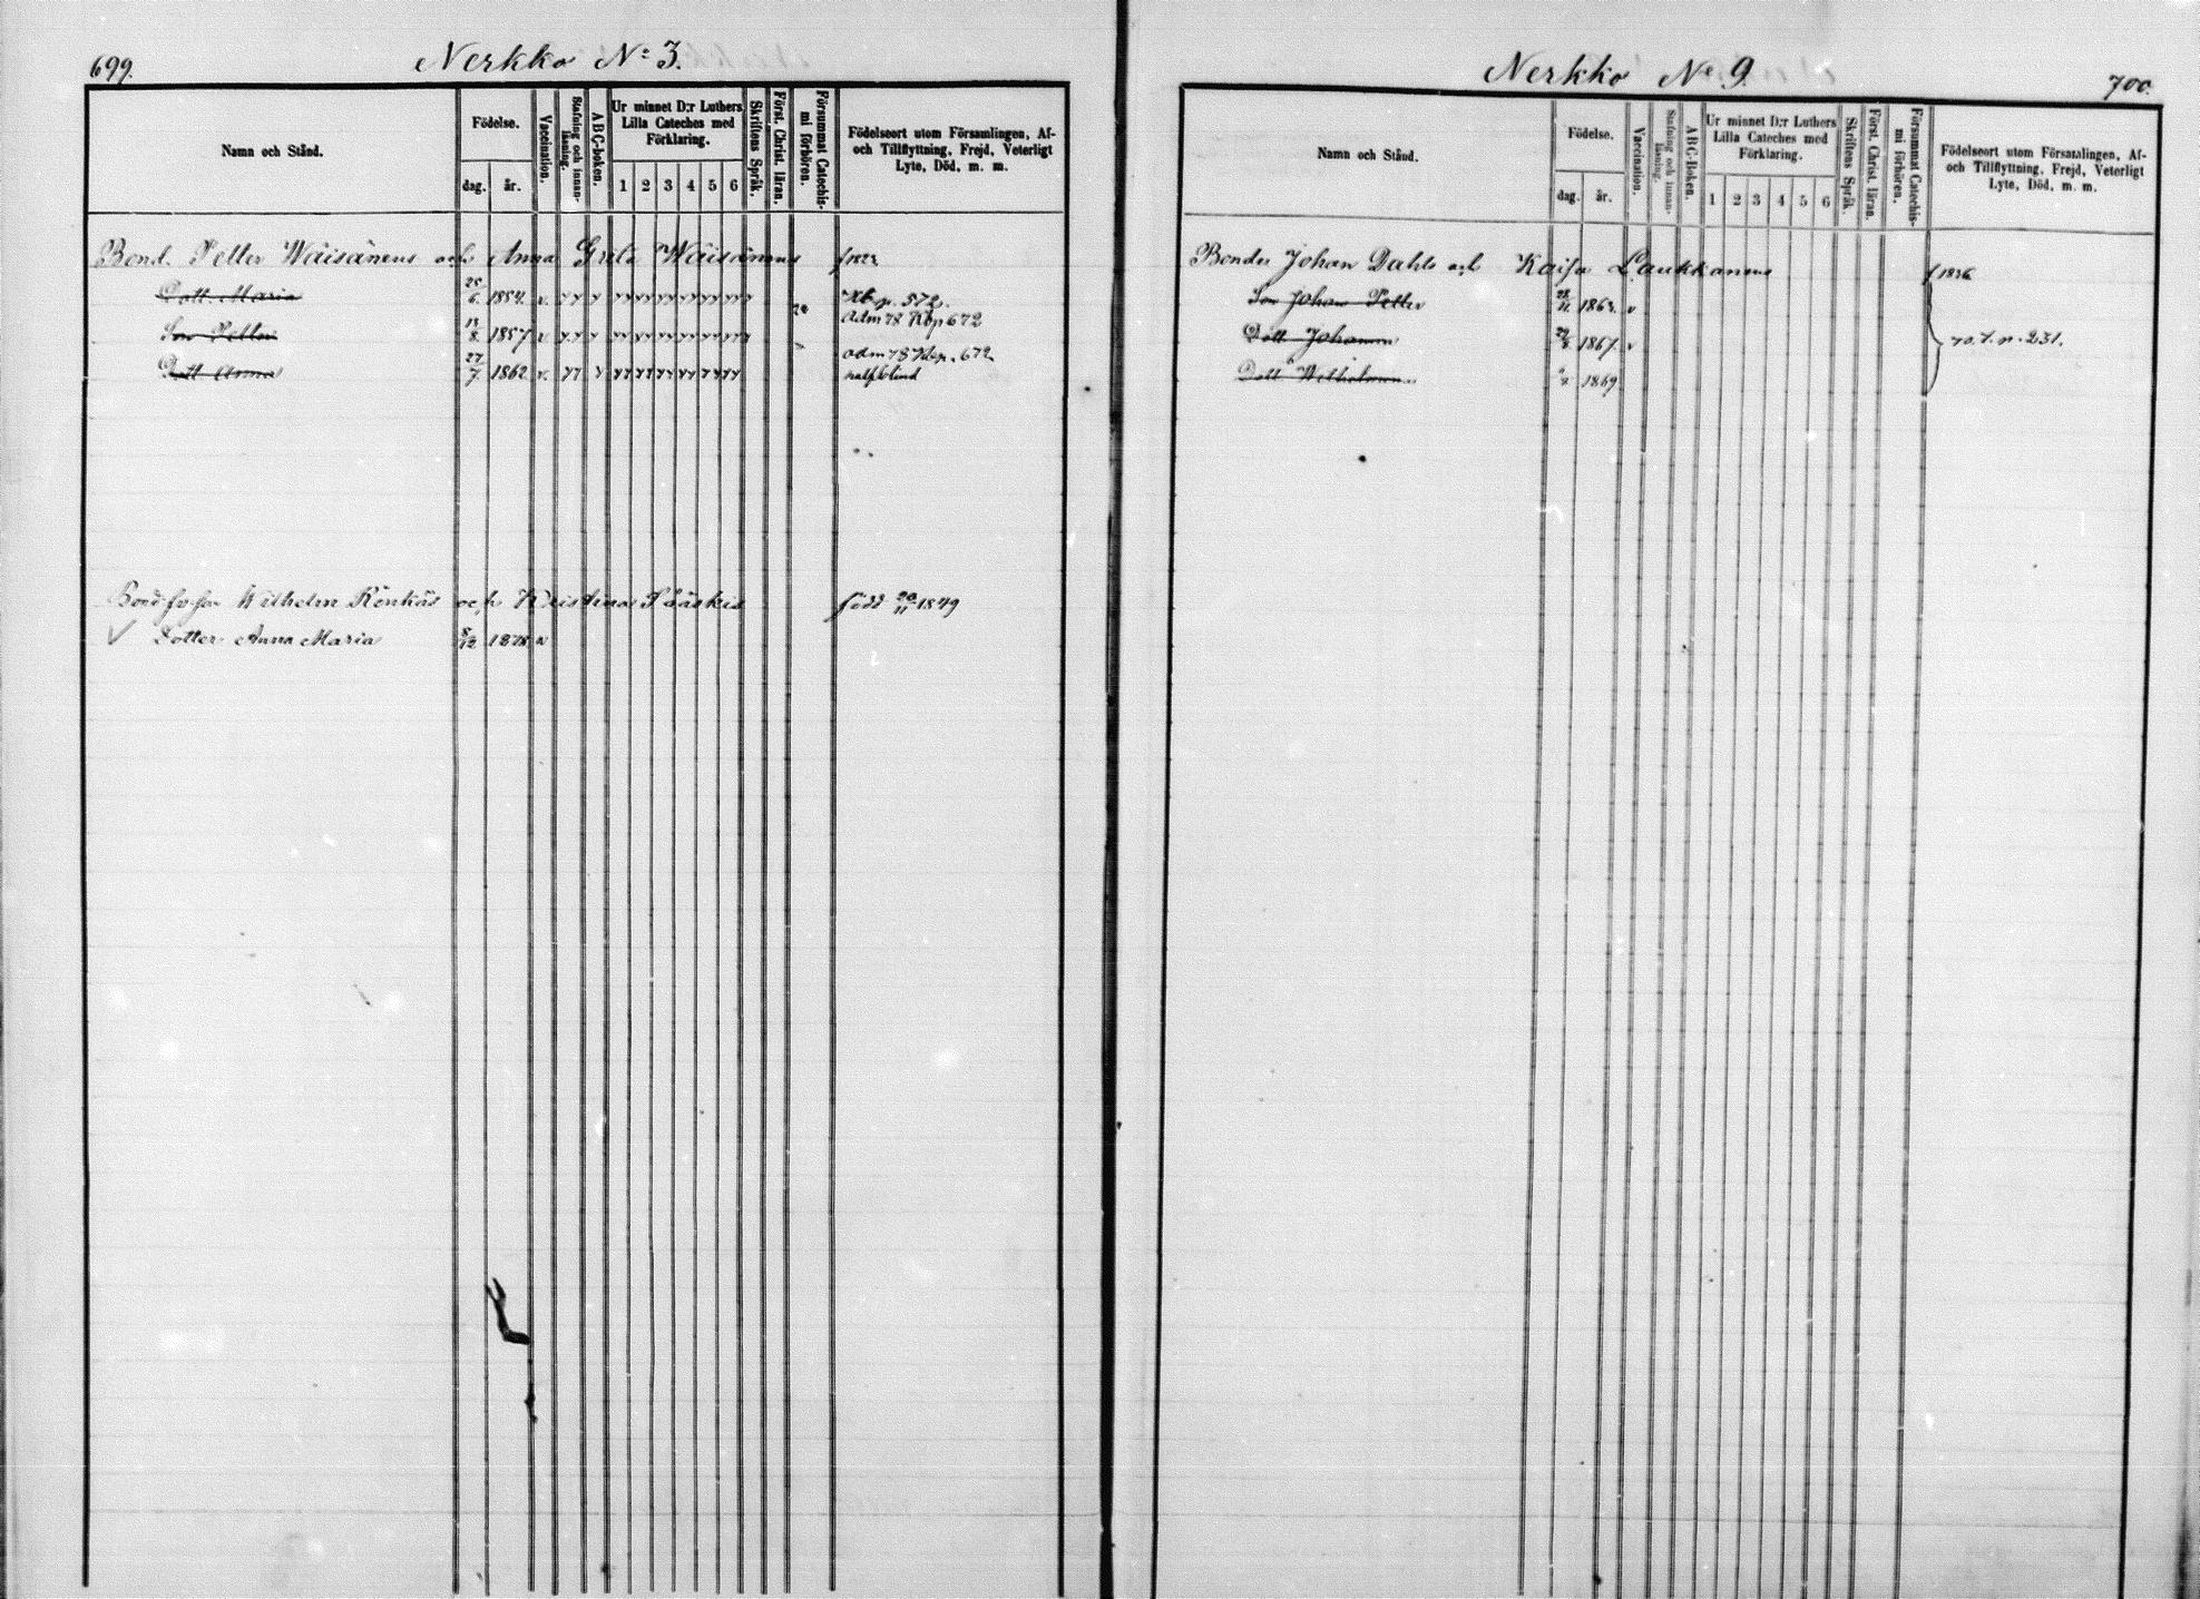 699.
Nerkko No 3.
Namn och Stånd.
Födelse.
dag.
år.
Vaccination.
Stafning och innan-
läsning.
ABC-boken.
Ur minnet D:r Luthers
Lilla Cateches med
Förklaring.
1 2 3 4 5 6
Skriftens Språk.
Först. Christ. läran.
Försummat Catechis-
mi förhören.
Födelseort utom Församlingen, Af-
och Tillflyttning, Frejd, Veterligt
Lyte, Död, m. m.
Bond. Petter Wäisänens och Anna Greta Wäisänens f 1822
Dott. Maria 25/6. 1854. v. Kb. p. 572.
Son Petter 13/8. 1857 v. Adm 78 Kbp 672
Dott Anna 27/7. 1862 v. adm 78 Kbp. 672
halfblind
Wilhelm Rönkäs och Kristina Sääskis född 20/11 1849
√ Dotter Anna Maria 5/12 1878 v
Nerkko No 9.
700.
Namn och Stånd.
Födelse.
dag.
år.
Vaccination.
Stafning och innan-
läsning.
ABC-boken.
Ur minnet D:r Luthers
Lilla Cateches med
Förklaring.
1 2 3 4 5 6
Skriftens Språk.
Först. Christ. läran.
Försummat Catechis-
mi förhören.
Födelseort utom Församlingen, Af-
och Tillflyttning, Frejd, Veterligt
Lyte, Död, m. m.
Bonden Johan Dahls och Kaisa Laukkanens f 1836
Son Johan Petter 1863. v
Dott Johanna 1867. v p. 231.
Dott Wilhelmina 1869